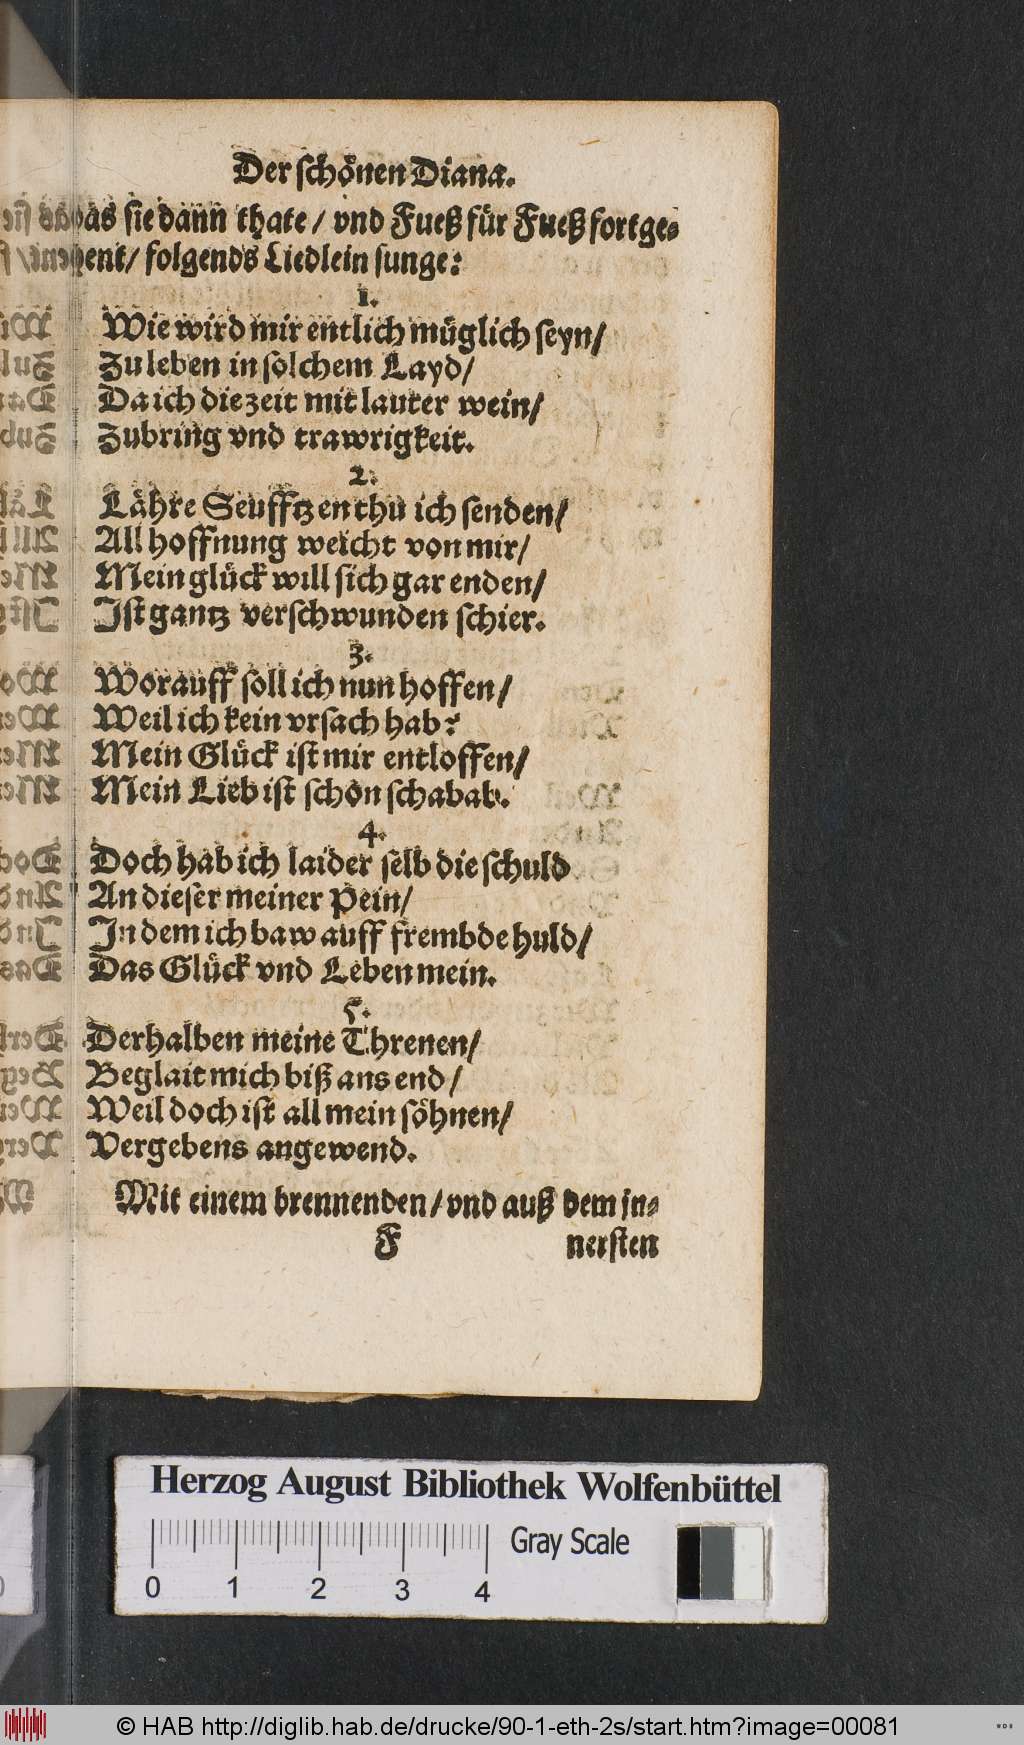 Der schönen Diana.
das sie dann thate / vnd Fueß für Fueß fortge-
hent / folgends Liedlein sunge:
1.
Wie wird mir entlich müglich seyn /
Zu leben in solchem Layd /
Da ich die zeit mit lauter wein /
Zubring vnd trawrigkeit.
2.
Lähre Seufftzen thu ich senden /
All hoffnung weicht von mir /
Mein glück will sich gar enden /
Ist gantz verschwunden schier.
3.
Worauff soll ich nun hoffen /
Weil ich kein vrsach hab?
Mein Glück ist mir entloffen /
Mein Lieb ist schon schabab.
4.
Doch hab ich laider selb die schuld
An dieser meiner Pein /
In dem ich baw auff frembde huld /
Das Glück vnd Leben mein.
5.
Derhalben meine Threnen /
Beglait mich biß ans end /
Weil doch ist all mein söhnen /
Vergebens angewend.
Mit einem brennenden / vnd auß dem in-
F nersten
Herzog August Bibliothek Wolfenbüttel
Gray Scale
0 1 2 3 4
© HAB http://diglib.hab.de/drucke/90-1-eth-2s/start.htm?image=00081